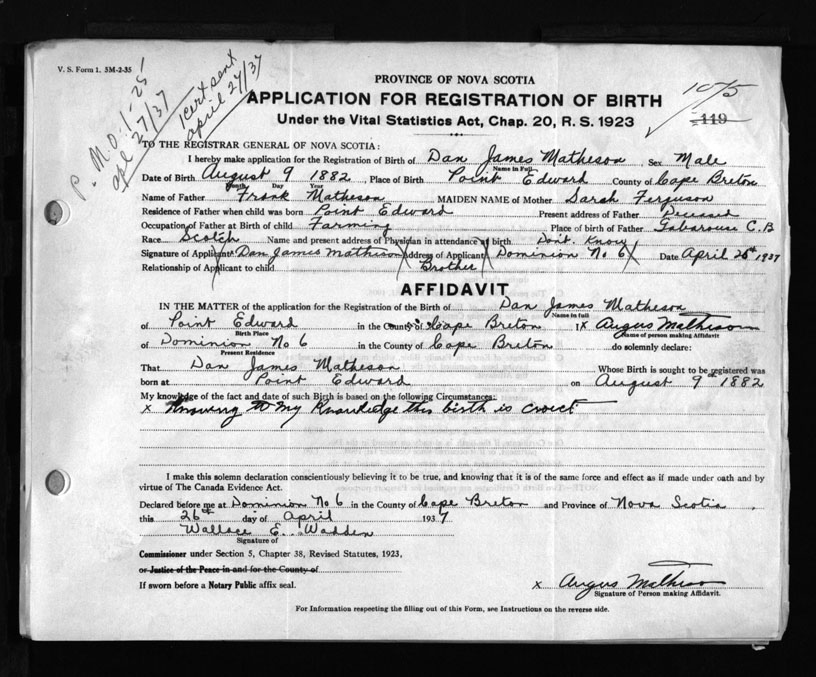 V. S. Form 1. 5M-2-35
P. M.O. 1.25
apl 27/37
1 cert sent
april 27/37
PROVINCE OF NOVA SCOTIA
APPLICATION FOR REGISTRATION OF BIRTH
Under the Vital Statistics Act, Chap. 20, R. S. 1923
105
119
TO THE REGISTRAR GENERAL OF NOVA SCOTIA:
I hereby make application for the Registration of Birth of Dan James Matheson, Sex Male
Name in Full
Date of Birth August 9 1882, Place of Birth Point Edward County of Cape Breton
Month Day Year
Name of Father Frank Matheson MAIDEN NAME of Mother Sarah Ferguson
Residence of Father when child was born Point Edward Present address of Father Deceased
Occupation of Father at Birth of child Farming Place of birth of Father Gabarouse C.B
Race Scotch Name and present address of Physician in attendance at birth Don't Know
Signature of Applicant Dan James Matheson Address of Applicant Dominion No 6 Date April 26th 1937
Relationship of Applicant to child Brother
AFFIDAVIT
IN THE MATTER of the application for the Registration of the Birth of Dan James Matheson
Name in full
of Point Edward in the County of Cape Breton I X Angus Matheson
Birth Place Name of person making Affidavit
of Dominion No 6 in the County of Cape Breton do solemnly declare:
Present Residence
That Dan James Matheson Whose Birth is sought to be registered was
born at Point Edward on August 9th 1882
My knowledge of the fact and date of such Birth is based on the following Circumstances:
x Knowing to my Knowledge this birth is
I make this solemn declaration conscientiously believing it to be true, and knowing that it is of the same force and effect as if made under oath and by
virtue of The Canada Evidence Act.
Declared before me at Dominion No 6 in the County of Cape Breton and Province of Nova Scotia
this 26th day of April 1937
Wallace E. Wadden
Signature of
Commissioner under Section 5, Chapter 38, Revised Statutes, 1923,
or Justice of the Peace in and for the County of
If sworn before a Notary Public affix seal.
x Angus Matheson
Signature of Person making Affidavit.
For Information respecting the filling out of this Form, see Instructions on the reverse side.